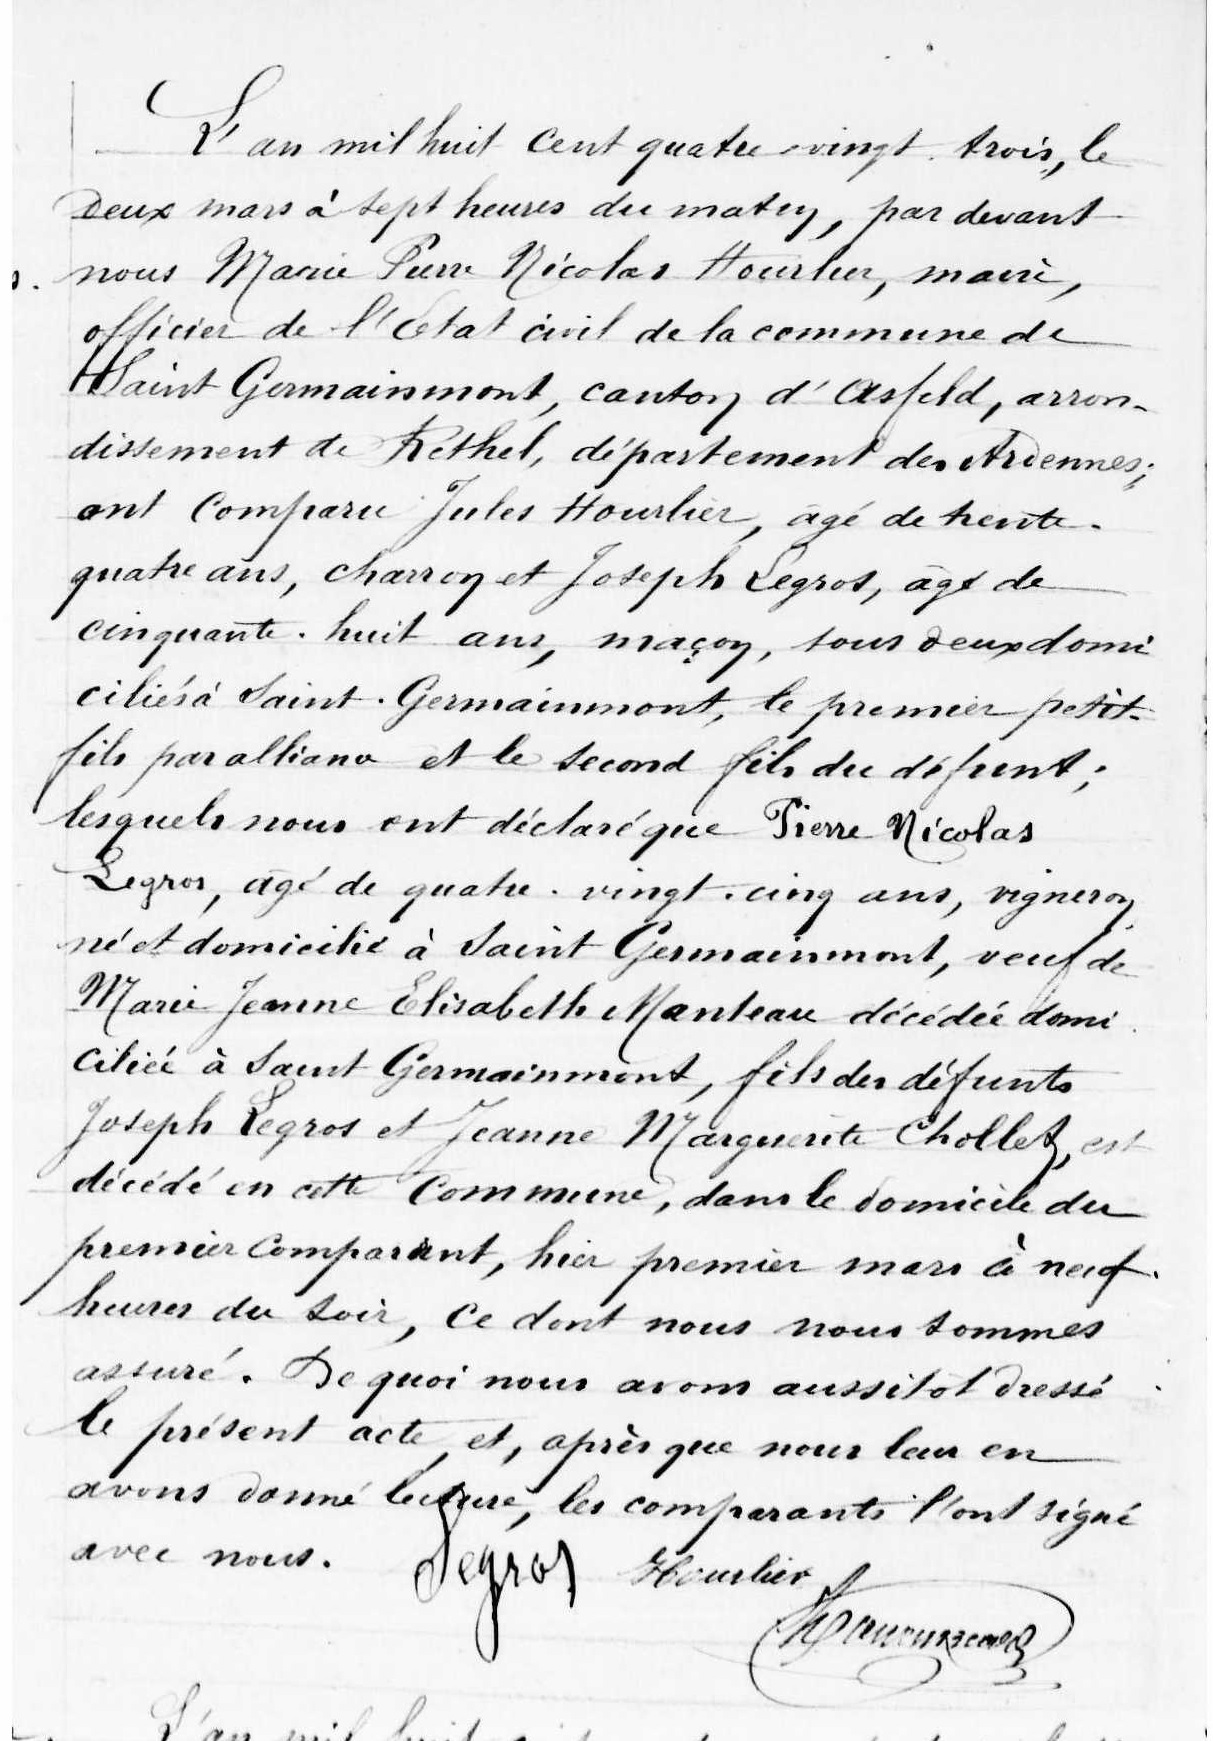 L'an mil huit cent quatre-vingt-trois, le
deux mars à sept heures du matin, par devant
nous Marie Pierre Nicolas Hourlier, maire,
officier de l'Etat civil de la commune de
Saint Germainmont, canton d'Asfeld, arron-
dissement de Rethel, département des Ardennes;
ont comparu Jules Hourlier, agé de trente-
quatre ans, charron et Joseph Legros, agé de
cinquante-huit ans, maçon, tous deux domi
ciliés à Saint-Germainmont, le premier petit-
fils par alliance et le second fils du défunt;
lesquels nous ont déclaré que Pierre Nicolas
Legros, agé de quatre-vingt-cinq ans, vigneron,
né et domicilié à Saint Germainmont, veuf de
Marie Jeanne Elisabeth Manteau décédée domi
ciliée à Saint Germainmont, fils des défunts
Joseph Legros et Jeanne Marguerite Chollet, est
décédé en cette commune, dans le domicile du
premier comparant, hier premier mars à neuf
heures du soir, ce dont nous nous sommes
assuré. De quoi nous avons aussitot dressé
le présent acte, et, après que nous leur en
avons donné lecture, les comparants l'ont signé
avec nous. Legros Hourlier
L'an mil huit